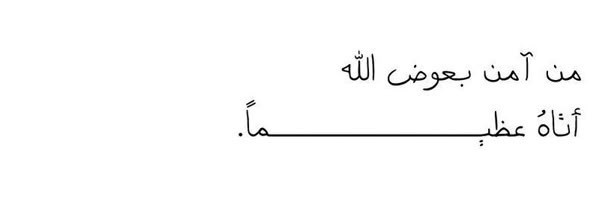 من آمن بعوض الله
أتاهُ عظيـــــــــــــــــــــــــــــــــماً.